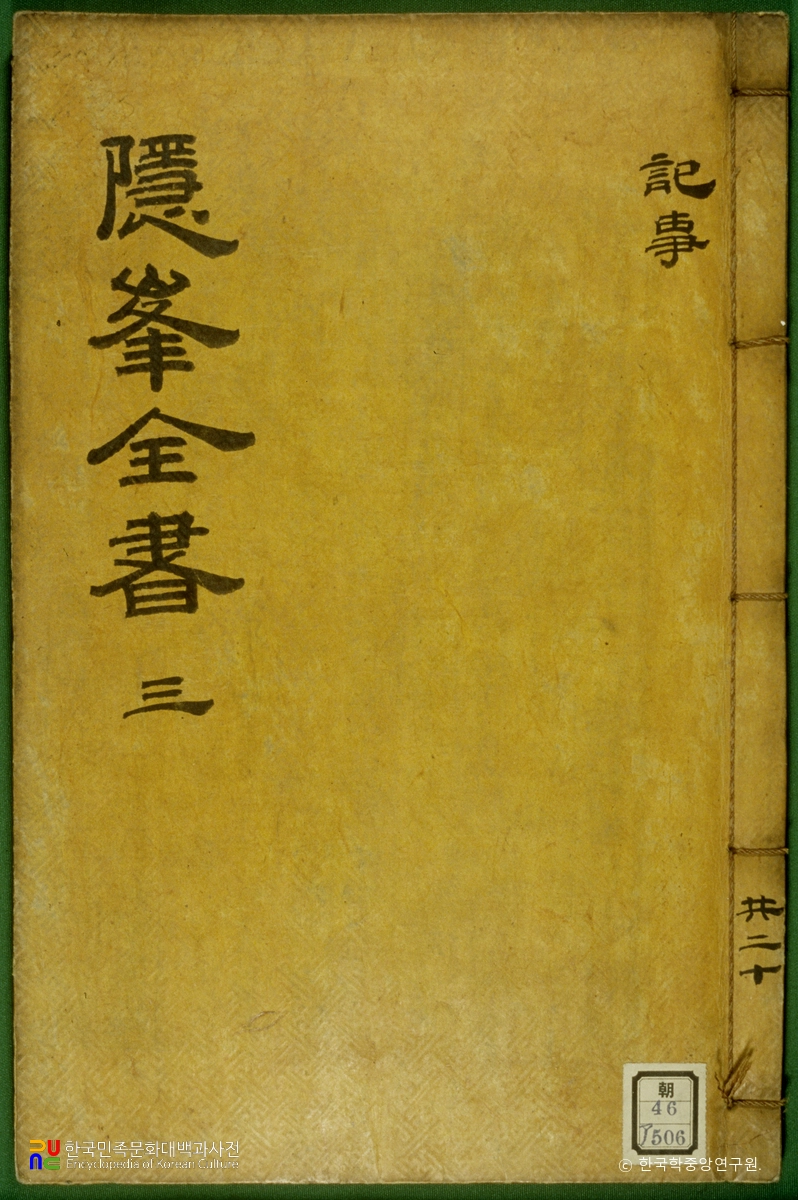 記事
隱峯全書 三
共二十
朝
46
ア506
한국민족문화대백과사전
Encyclopedia of Korean Culture
© 한국학중앙연구원.